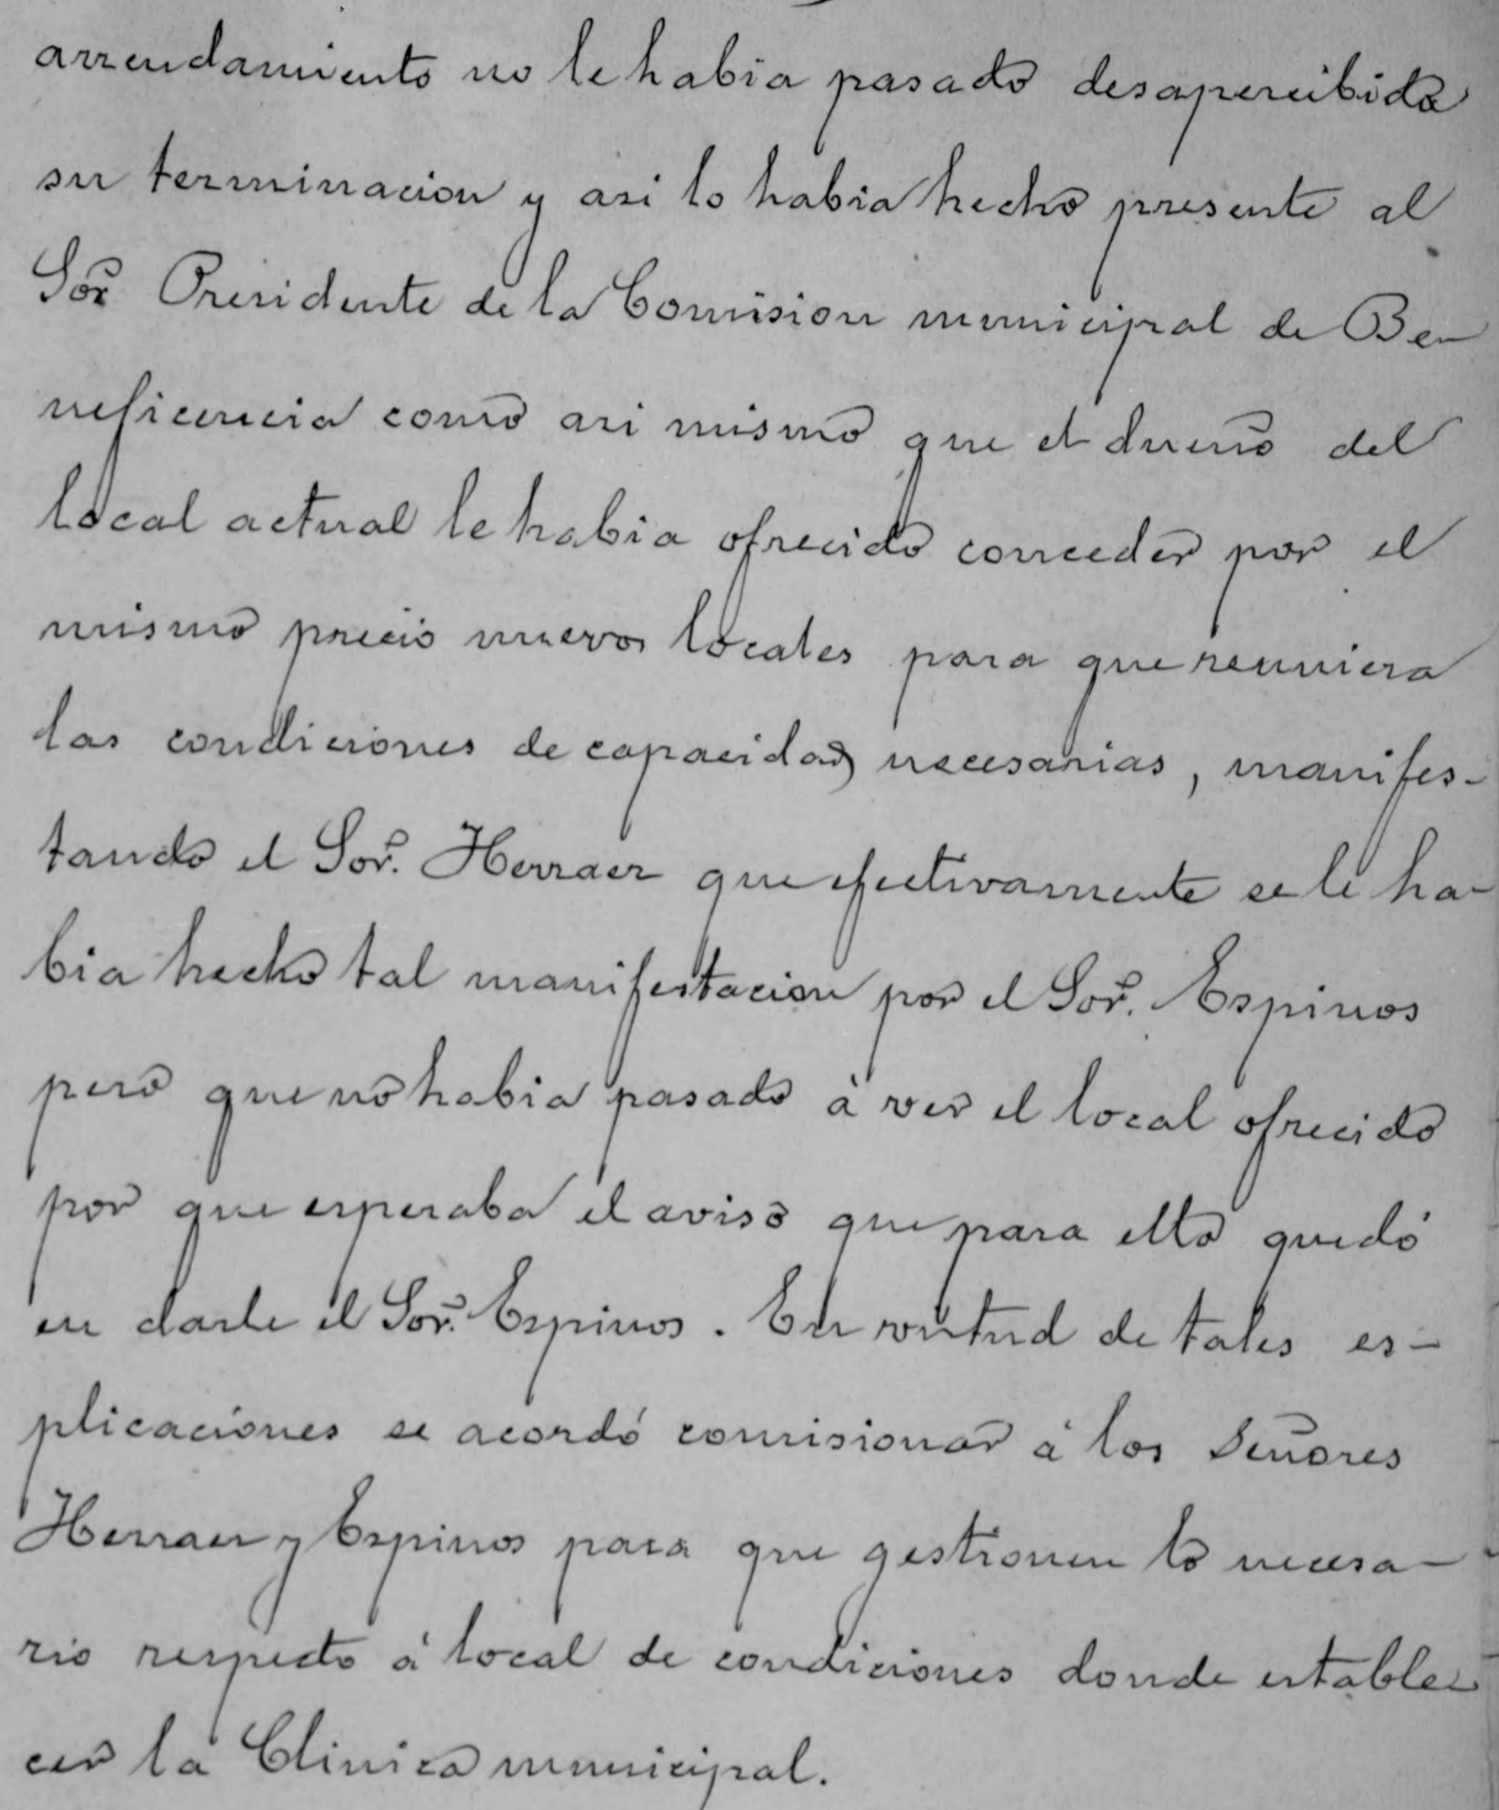 arrendamiento no le habia pasado desapercibida
su terminacion y asi lo habia hecho presente al
Sor Presidente de la Comision municipal de Be-
neficencia como asi mismo que el dueño del
local actual le habia ofrecido conceder por el
mismo precio nuevos locales para que reuniera
las condiciones de capacidad necesarias, manifes-
tando el Sor. Herraez que efectivamente se le ha-
bia hecho tal manifestacion por el Sor. Espinos
pero que no habia pasado á ver el local ofrecido
por que esperaba el aviso que para ello quedó
en darle el Sor. Espinos. En virtud de tales es-
plicaciones se acordó comisionar á los Señores
Herraez y Espinos para que gestionen lo necesa-
rio respecto á local de condiciones donde estable-
cer la Clinica municipal.